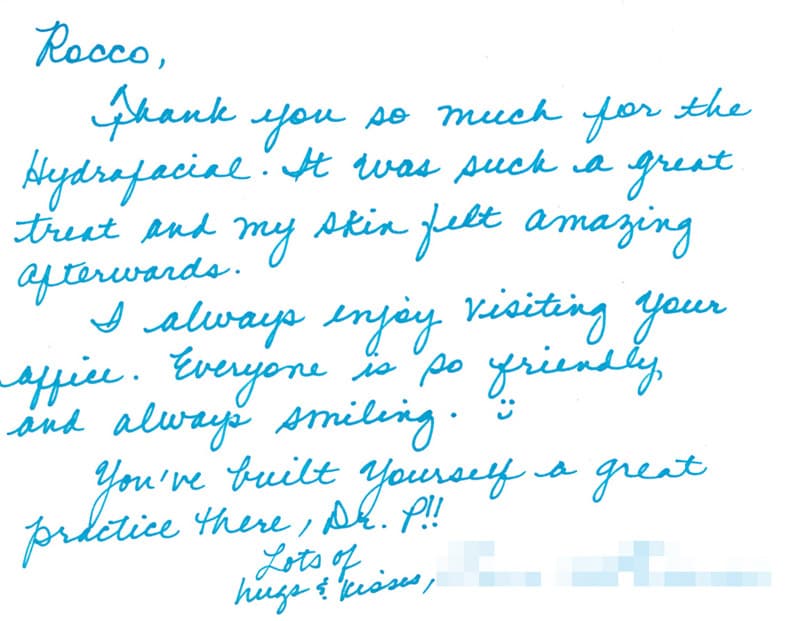 Rocco,
Thank you so much for the
Hydrafacial. It was such a great
treat and my skin felt amazing
afterwards.
I always enjoy visiting your
office. Everyone is so friendly
and always smiling. :)
You've built yourself a great
practice there, Dr. P!!
Lots of
hugs & kisses,